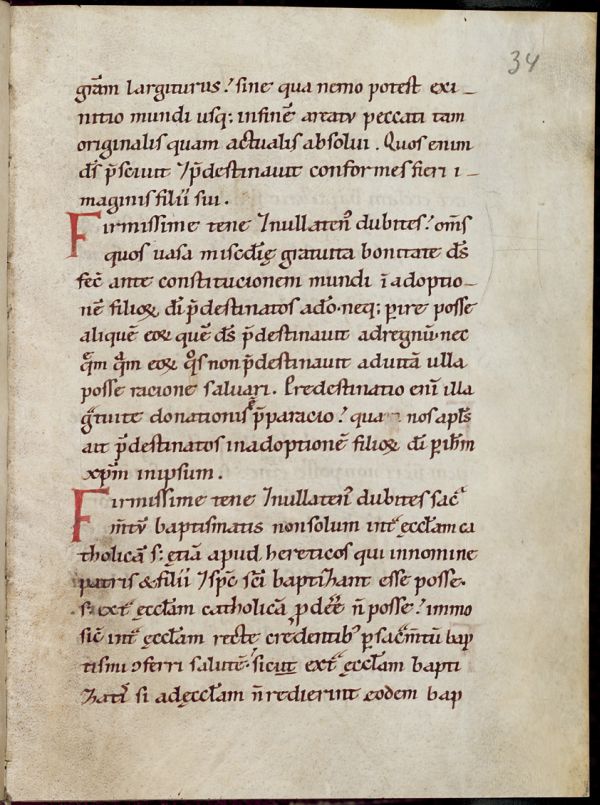 34
grã̄m largiturus! sine qua nemo potest exi-
nitio mundi usq; infinē areatu peccati tam
originalis quam actualis absolui. Quos enim
ds̄ p̄sciuit ⁊p̄destinauit conformes fieri i-
maginis filii sui.
Firmissime tene ⁊nullaten᷒ dubites! om̄s
quos uasa misc̄dię gratuita bonitate ds̄
fec̄ ante constitucionem mundi ī adoptio-
nē filioꝝ dī p̄destinatos adō. neq; ꝑire posse
aliquē eoꝝ quē ds̄ p̄destinauit adregnū. nec
qͣm qͣm eoꝝ qͦs non p̄destinauit aduitā ulla
posse racione saluari. Predestinatio enī illa
gͣtuite donationis p̄paracio! qua nos apl̄s
ait p̄destinatos inadoptionē filioꝝ dī ꝑ ih̄m
xp̄m inipsum.
Firmissime tene ⁊nullaten᷒ dubites sacͣ
m̄tū baptismatis nonsolum intͣ ęccl̄am ca
tholicā s; ętiā apud hereticos qui innomine
patris & filii ⁊sp̄c sc̄i baptizant esse posse.
s; extͣ ęccl̄am catholicā ꝓdeē n̄ posse! immo
sic̄ intͣ ęccl̄am recte credentibꝰ ꝑ sacͣm̄tū bap
tismi ↄferri salutē. sicut extͣ ęccl̄am bapti
zatis si adęccl̄am n̄ redierint eodem bap